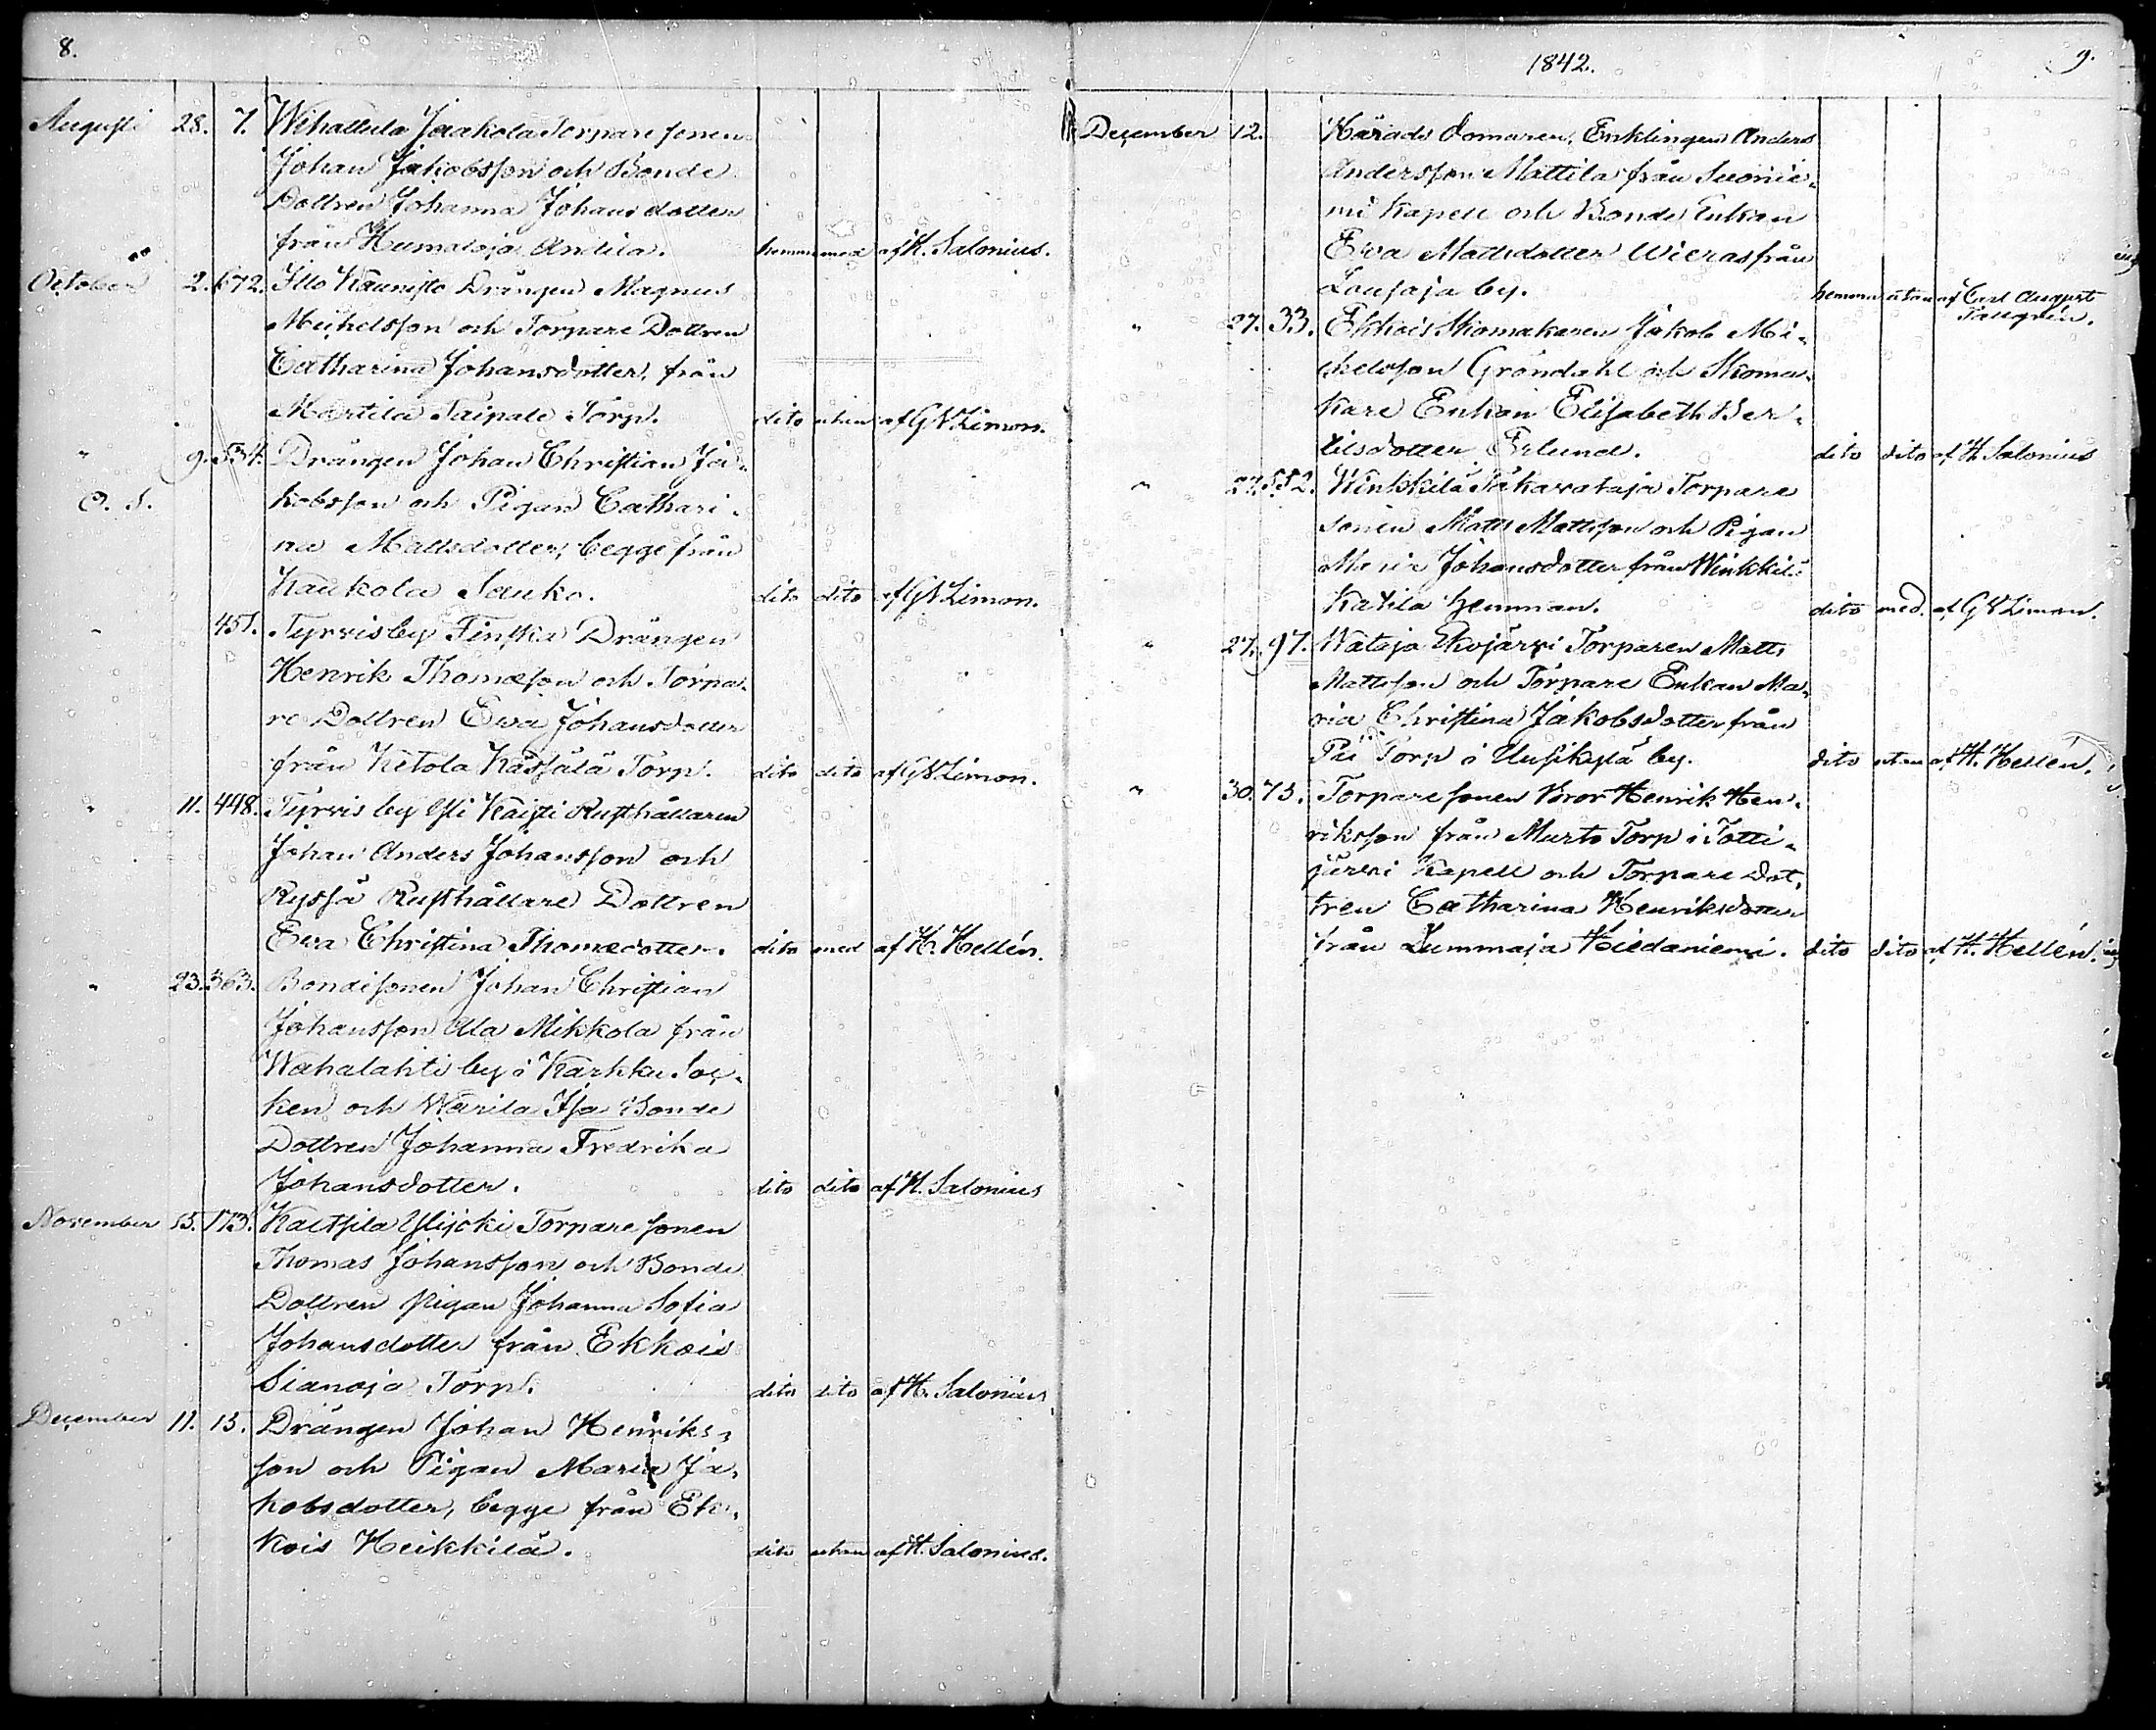 8.
Augusti 28. 7. Wihattula Jaakola Torpare sonen
Johan Jakobsson och Bonde
Dottren Johanna Johansdotter
från Humaloja Anttila. hemma med af H. Salonius.
October 2. 672. Illo Kaunisto Drängen Magnus
Michelsson och Torpare Dottren
Catharina Johansdotter, från
Marttila Taipale Torp. dito utan af G N Limon.
" 9. 534. Drängen Johan Christian Ja-
O. S. kobsson och Pigan Cathari-
na Mattsdotter, begge från
Kaukola Sauko. dito dito af G N Limon.
" 451. Tyrvis by Finska Drängen
Henrik Thomæson och Torpa-
re Dottren Ewa Johansdotter
från Ketola Kässälä Torp. dito dito af G N Limon.
" 11. 448. Tyrvis by Yli Kaisti Rusthållaren
Johan Anders Johansson och
Ryssä Rusthållare Dottren
Ewa Christina Thomædotter. dito med af H. Hellén.
" 23. 363. Bondesonen Johan Christian
Johansson Ala Mikkola från
Wahalahti by i Karkku Soc-
ken och Warila Isa Bonde
Dottren Johanna Fredrika
Johansdotter. dito dito af H. Salonius
November 15. 173. Kaltsila Ylijoki Torpare sonen
Thomas Johansson och Bonde
Dottren pigan Johanna Sofia
Johansdotter från Ekkois
Sianoja Torp. dito dito af H. Salonius
December 11. 15. Drängen Johan Henriks-
son och Pigan Maria Ja-
kobsdotter, begge från Ek-
kois Heikkilä. dito utan af H. Salonius.
1842. 9.
December 12. Härads domaren, Enklingen Anders
Andersson Mattila från Suonie-
mi Kapell och Bonde Enkan
Ewa Mattsdotter Wieras från
Lousaja by. hemma utan af Carl August
Tallgrén.
" 27. 33. Ekkois Skomakaren Jakob Mi-
chelsson Gröndahl och Skoma-
kare Enkan Elisabeth Ber-
tilsdotter Erlund. dito dito af H. Salonius
" 27. 552. Winkkilä Takavataja Torpare
sonen Matts Mattsson och Pigan
Maria Johansdotter från Winkkilä
Katila hemman. dito med. af G N Limon.
" 27. 97. Wataja Ekojärvi Torparen Matts
Mattsson och Torpare Enkan Ma-
ria Christina Jakobsdotter från
Pii Torp i Uusikylä by. dito utan af H. Hellén.
" 30. 75. Torparesonen Bror Henrik Hen-
riksson från Murto Torp i Totti-
järvi Kapell och Torpare Dot-
tren Catharina Henriksdotter
från Lummaja Kiedaniemi. dito dito af H. Hellén.